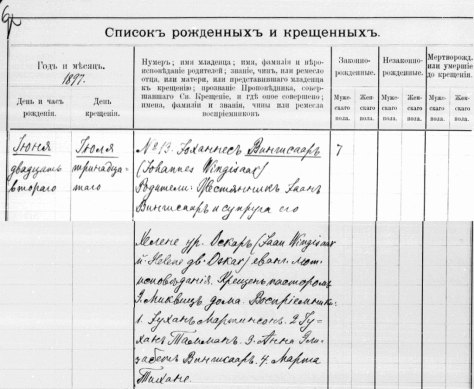 Списокъ рожденныхъ и крещенныхъ.
Годъ и мѣсяцъ.
1897.
День и часъ рожденія.
День крещенія.
Нумеръ; имя младенца; имя, фамилія и вѣро-
исповѣданіе родителей; званіе, чинъ, или ремесло
отца, или матери, или представившаго младенца
къ крещенію; прозваніе Проповѣдника, совер-
шившаго Св. Крещеніе, и гдѣ оное совершено;
имена, фамиліи и званіе, чины или ремесла
воспріемниковъ
Законно-
рожденные.
Незаконно-
рожденные.
Мертворожд.
или умершіе
до крещенія.
Муже-
скаго
пола.
Жен-
скаго
пола.
Муже-
скаго
пола.
Жен-
скаго
пола.
Муже-
скаго
пола.
Жен-
скаго
пола.
Іюня
двадцать
втораго
Іюля
тринадца-
таго
№13. Іоханнесъ Вингисааръ
(Johannes Wingisaar)
Родители: Жестянникъ Яанъ
Вингисааръ и супруга его
7
Хелене ур. Оскаръ (Jaan Wingisaar
й. Helene дв. Oskar) еванг. лют.
исповѣданія. Крещенъ пасторомъ
дома. Воспріемник.
1. Юханъ Мартинсонъ. 2. Ю-
ханъ Тальманъ. 3. Анна Эли-
забетъ Вингисааръ. 4. Марта
Тихане.